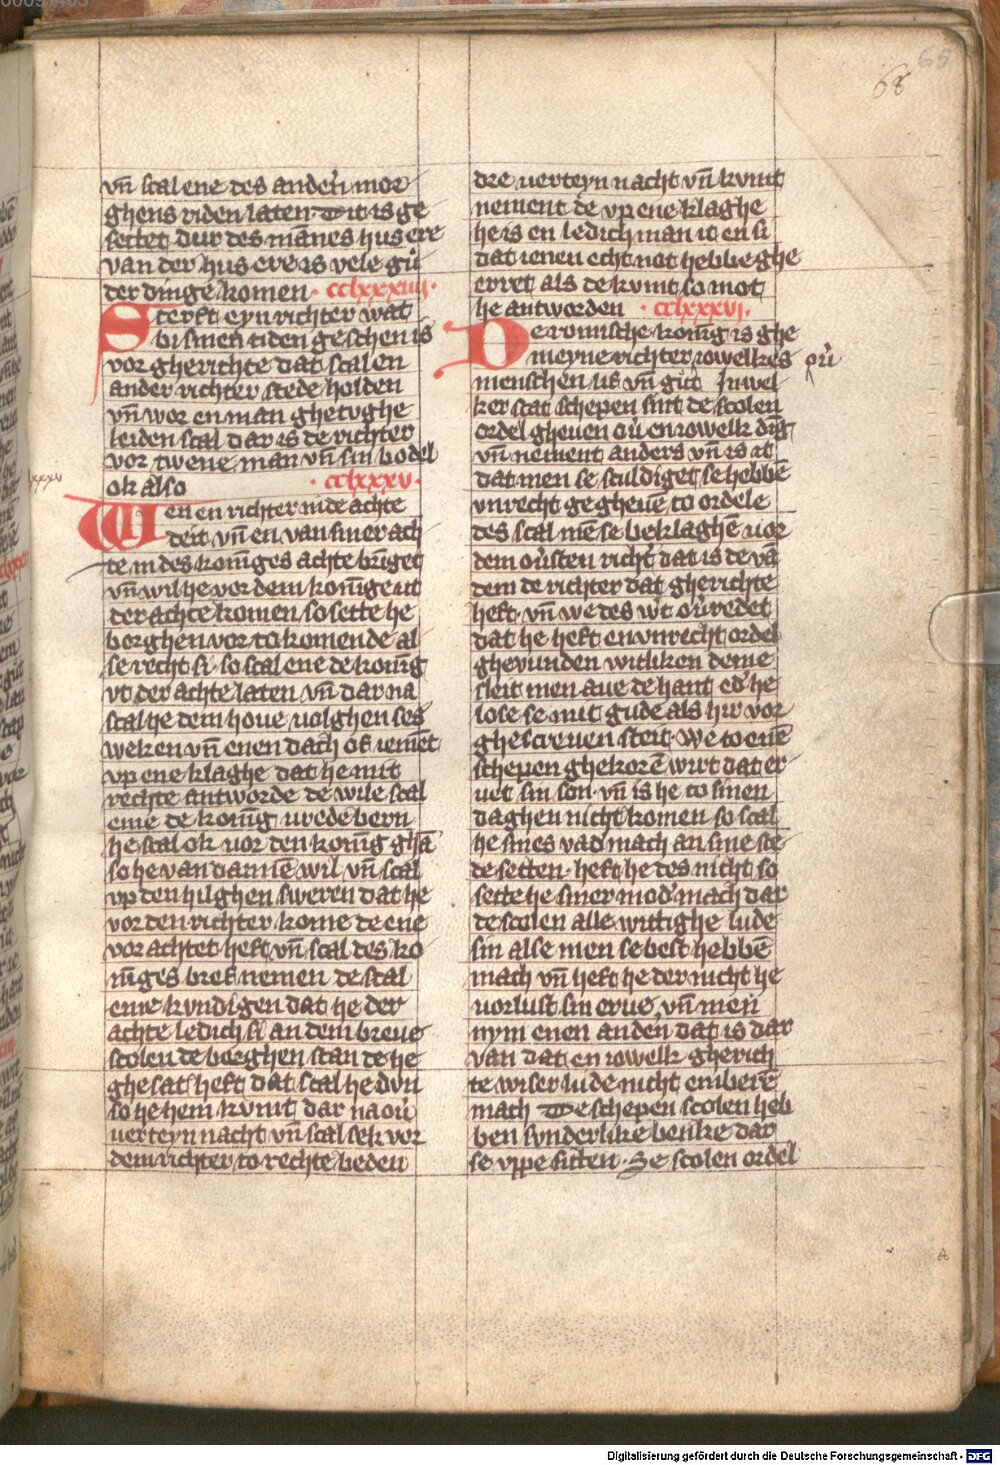 65
68
vn̄ scal ene des anderñ mor
ghens riden laten · Dit is ge
settet dur des mānes hus ere
van der hus ere is vele gů
der dinge komen · cclxxxiiii ·
Sterft eyn richter wat
bi sinen tiden geschen is
vor gherichte dat scal en
ander richter stede holden
vn̄ wor en man ghetughe
leiden scal dar is de richter
vor twene man vn̄ sin bodel
ok also · cclxxxv ·
Wen en richter in de achte
deit vn̄ en van siner ach
te in des koniges achte brīget
vn̄ wil he vor dem konīge ut
der achte komen so sette he
borghen vor to komende al
se recht si · so scal ene de konīg
vt der achte laten vn̄ dar na
scal he dem houe volghen ses
weken vn̄ enen dach of iemēt
vp ene klaghe dat he mit
rechte antworde de wile scal
eme de konīg vrede bern
he scal ok vor den konīg ghā
so he van dannē wil vn̄ scal
vp den hilghen sweren dat he
vor den richter kome de ene
vor achtet heft vn̄ scal des ko
niges bref nemen de scal
eme kundigen dat he der
achte ledich si an dem breue
scolen de borghen stan de he
ghesat heft dat scal he dvn
so he hem kvmt dar na ou̅
verteyn nacht vn̄ scal sek vor
dem richter to rechte beden
dre verteyn nacht vn̄ kvmt
nement de vp ene klaghe
he is en ledich man it en si
dat ieneu echt not hebbe ghe
erret als de kvmt so mot
he antworden · cclxxxvi ·
De romische konīg is ghe
meyne richter iowelkes ou̅
menschen lif vn̄ gůt Inwel
ker stat schepen sint de scolen
ordel gheuen ou̅ en iowelk dīg
vn̄ nement anders vn̄ is it
dat men se sculdiget se hebbē
vnrecht gegheuē to ordele
des scal mē se beklaghē vor
dem ou̅sten richt̄ dat is de vā
dem de richter dat gherichte
heft · vn̄ we des wt ou̅redet
dat he heft en vnrecht ordel
ghevunden witliken deme
sleit men aue de hant ed̄ he
lose se mit gude als hir vor
ghescreuen steit · We to enē
schepen ghekorē wirt dat er
vet sin son · vn̄ is he to sinen
daghen nicht komen so scal
he sines vad̄ mach an sine ste
de setten · heft he des nicht so
sette he siner mod̄ mach dar
de scolen alle wittighe lude
sin alse men se best hebbē
mach vn̄ heft he der nicht he
vorlust sin erue vn̄ men
nym enen anden dat is dar
van dat en iowelk gherich
te wiser lude nicht emberē
mach De schepen scolen heb
ben svnderlike benke dar
se vppe sitten · Se scolen ordel
Digitalisierung gefördert durch die Deutsche Forschungsgemeinschaft - DFG